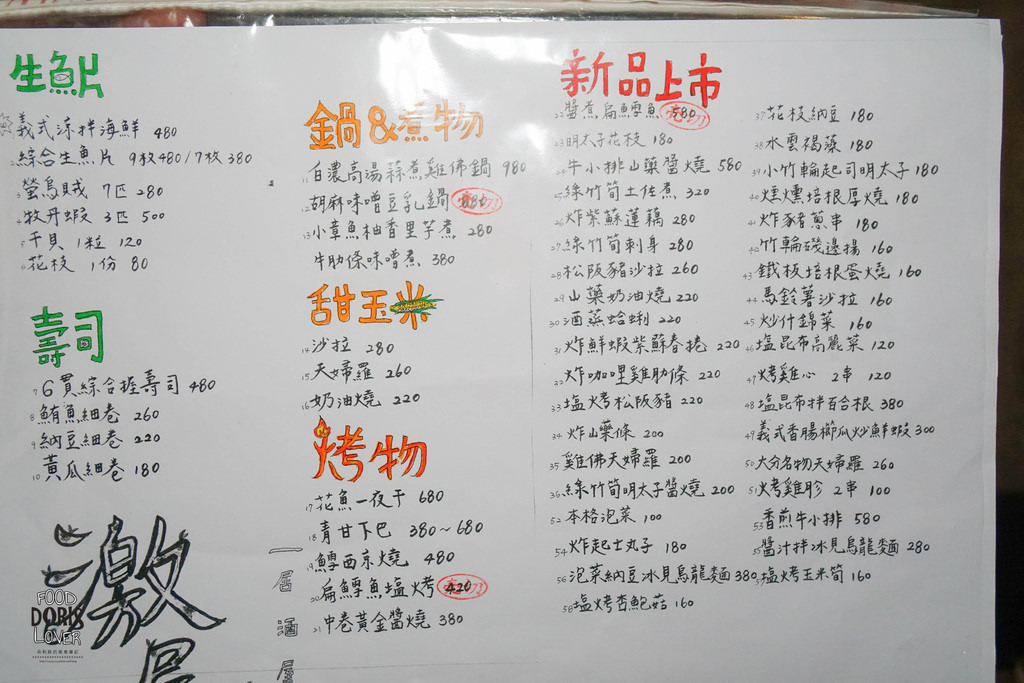 生魚片
1義式涼拌海鮮 480
2綜合生魚片 9枚480/7枚380
3螢烏賊 7匹 280
4牧丹蝦 3匹 500
5干貝 1粒 120
6花枝 1份 80
壽司
7 6貫綜合握壽司 480
8鮪魚細卷 260
9納豆細卷 220
10黃瓜細卷 180
激
居
一居酒屋
FOOD
DORIS
LOVER
鍋&煮物
11白濃高湯蒜煮雞佛鍋 980
12胡麻味噌豆乳鍋 售切
13小章魚柚香里芋煮 280
牛肋條味噌煮 380
甜玉米
14沙拉 280
15天婦羅 260
16奶油燒 220
烤物
17花魚一夜干 680
18青甘下巴 380~680
19鱈西京燒 480
20扁鱈魚塩烤 420
21中卷黃金醬燒 380
新品上市
22醬煮扁鱈魚 580
23明太子花枝 180
24牛小排山藥醬燒 580
25綠竹筍土佐煮 320
26炸紫蘇蓮藕 280
27綠竹筍刺身 280
28松阪豬沙拉 260
29山藥奶油燒 220
30酒蒸蛤蜊 220
31炸鮮蝦紫蘇春捲 220
32炸咖哩雞肋條 220
33塩烤松阪豬 220
34炸山藥條 200
35雞佛天婦羅 200
36綠竹筍明太子醬燒 200
52本格泡菜 100
54炸起士丸子 180
56泡菜納豆冰見烏龍麵 380
58塩烤杏鮑菇 160
37花枝納豆 180
38水雲褐藻 180
39小竹輪起司明太子 180
40煙燻培根厚燒 180
41炸豬蔥串 180
42竹輪磯邊揚 160
43鐵板培根蛋燒 160
44馬鈴薯沙拉 160
45炒什錦菜 160
46塩昆布高麗菜 120
47烤雞心 2串 120
48塩昆布拌百合根 380
49義式香腸櫛瓜炒鮮蝦 300
50大分名物天婦羅 260
51烤雞胗 2串 100
53香煎牛小排 580
55醬汁拌冰見烏龍麵 280
57塩烤玉米筍 160